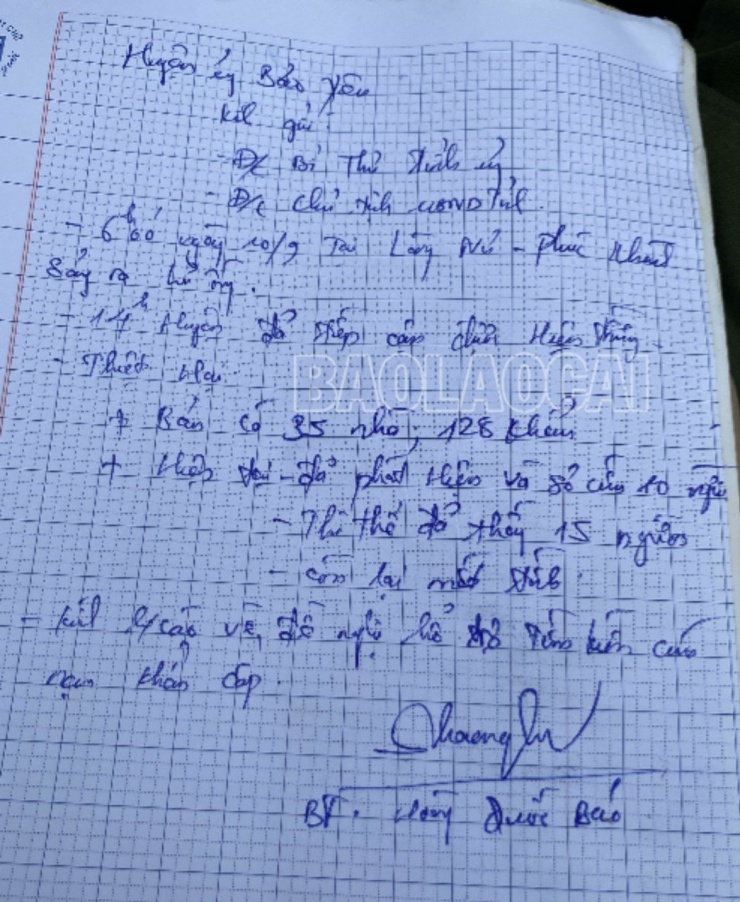 Huyện ủy Bảo Yên
Kính gửi:
- Đ/c Bí thư tỉnh ủy
- Đ/c Chủ tịch UBND Tỉnh.
- 6h00 ngày 10/9 Tại Làng Nủ - Phúc Khánh
Sảy ra lũ ống.
- 14h Huyện đã tiếp cận được Hiện trường
- Thiệt Hại
BAOLAOCAI
+ Bản có 35 nhà, 128 khẩu
+ Hiện tại - đã phát hiện và sơ cứu 10 người
- Thi thể đã thấy 15 người
- Còn lại mất tích.
- Kính b/cáo về, đề nghị hỗ trợ tìm kiếm cứu
nạn khẩn cấp.
BT. Hoàng Quốc Bảo